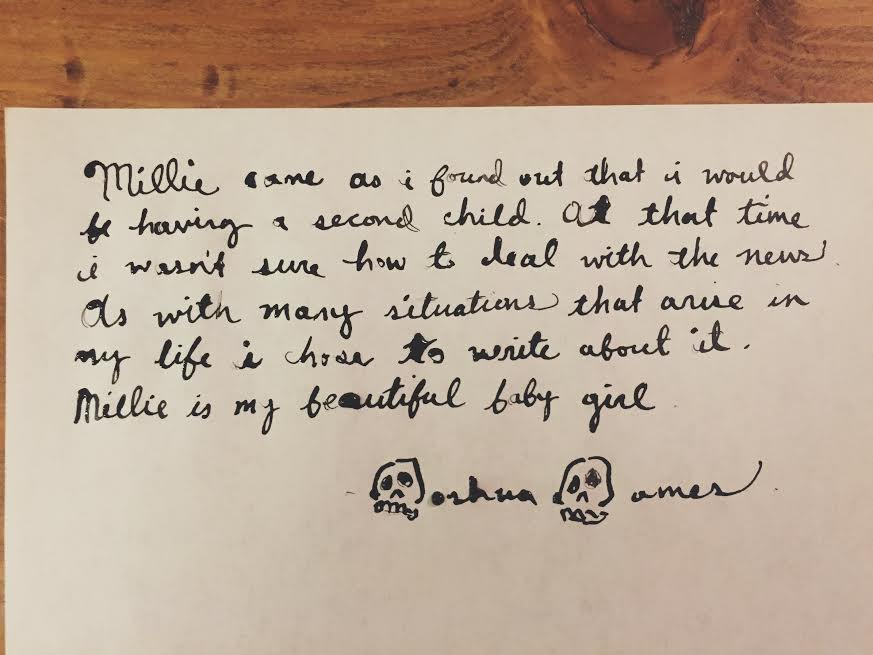 Millie came as i found out that i would
be having a second child. At that time
i wasn't sure how to deal with the news.
As with many situations that arise in
my life i chose to write about it.
Millie is my beautiful baby girl.
- Joshua James.